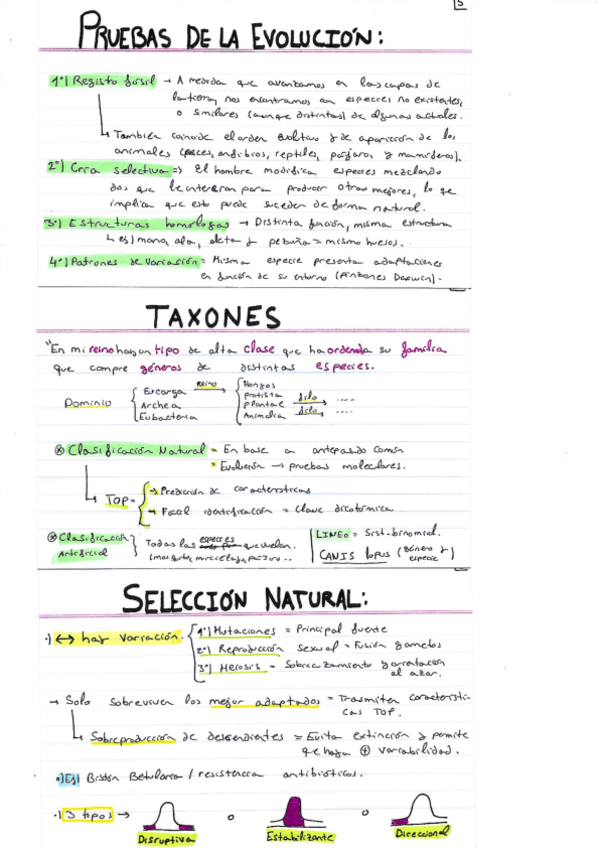 5
PRUEBAS DE LA EVOLUCIÓN:
1º) Registo fósil → A medida que avanzamos en las capas de
la tierra, nos encontramos con especies no existentes,
o similares (aunque distintas) de algunas actuales.
↳ También coincide el orden evolutivo y de aparición de los
animales (peces, anfibios, reptiles, pájaros y mamíferos).
2º) Cría selectiva => El hombre modifica especies mezclando
dos que le interesan para producir otras mejores, lo que
implica que esto puede suceder de forma natural.
3º) Estructuras homólogas → Distinta función, misma estructura
↳ ej) mano, ala, aleta y pezuña = mismo huesos.
4º) Patrones de variación = Misma especie presenta adaptaciones
en función de su entorno (Pinzones Darwin).
TAXONES
"En mi reino hay un tipo de alta clase que ha ordenado su familia
que compre géneros de distintas especies.
Dominio { Eucarya reino → { Hongos
Archea protista filo → ....
Eubacteria plantae filo → ....
Animalia
⊗ Clasificación Natural = En base a antepasado común
* Evolución → pruebas moleculares.
↳ TOP = { → Predicción de características
→ Fácil identificación = Clave dicotómica
⊗ Clasificación Artificial } Todas las especies que vuelan.
(mosquito, murciélago, pájaro...
LINEO = Sist. binomial.
CANIS lupus (Género y especie)
SELECCIÓN NATURAL:
·) ↔ hay variación. { 1º) Mutaciones = Principal fuente
2º) Reproducción sexual = Fusión gametos
3º) Meiosis - Sobrecruzamiento y orientación
al azar.
→ Solo sobreviven los mejor adaptados = Trasmiten característi
cas TOP.
↳ Sobreproducción de descendientes = Evita extinción y permite
que haya ⊕ variabilidad.
·) Ej) Biston Betularia / resistencia antibióticos.
·) 3 tipos → o o
Disruptiva Estabilizante Direccional